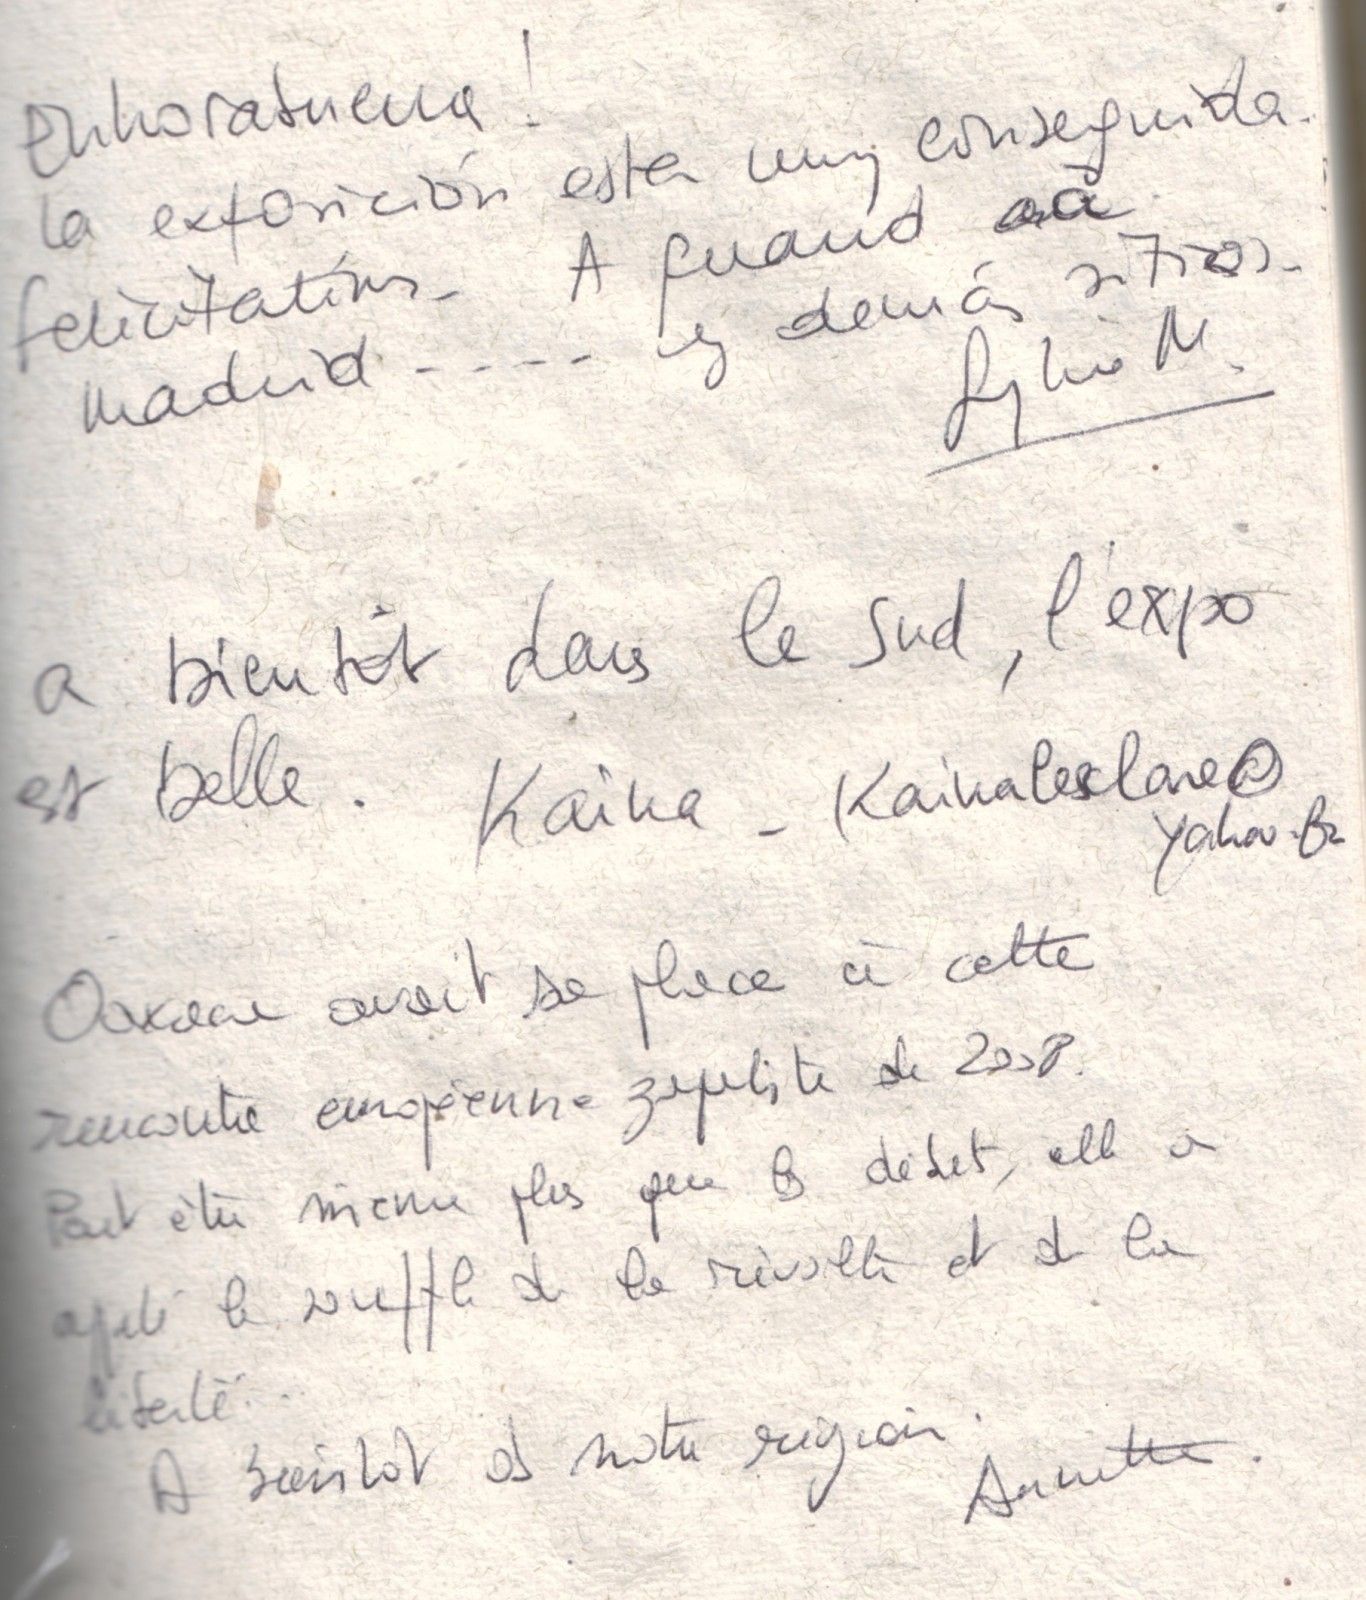 Enhorabuena!
la exposición esta muy conseguida.
felicitations. A quand a
Madrid ----- y demás sitios.
Sylvie M.
a bientôt dans le sud, l'expo
est belle. Kaina - Kainalesclave@
yahoo.fr
Oaxaca avait sa place à cette
rencontre européenne zapatiste de 2008.
Peut être même plus que le débat, elle a
le souffle de la révolte et de la
liberté..
A bientôt ds notre région.
Annette.